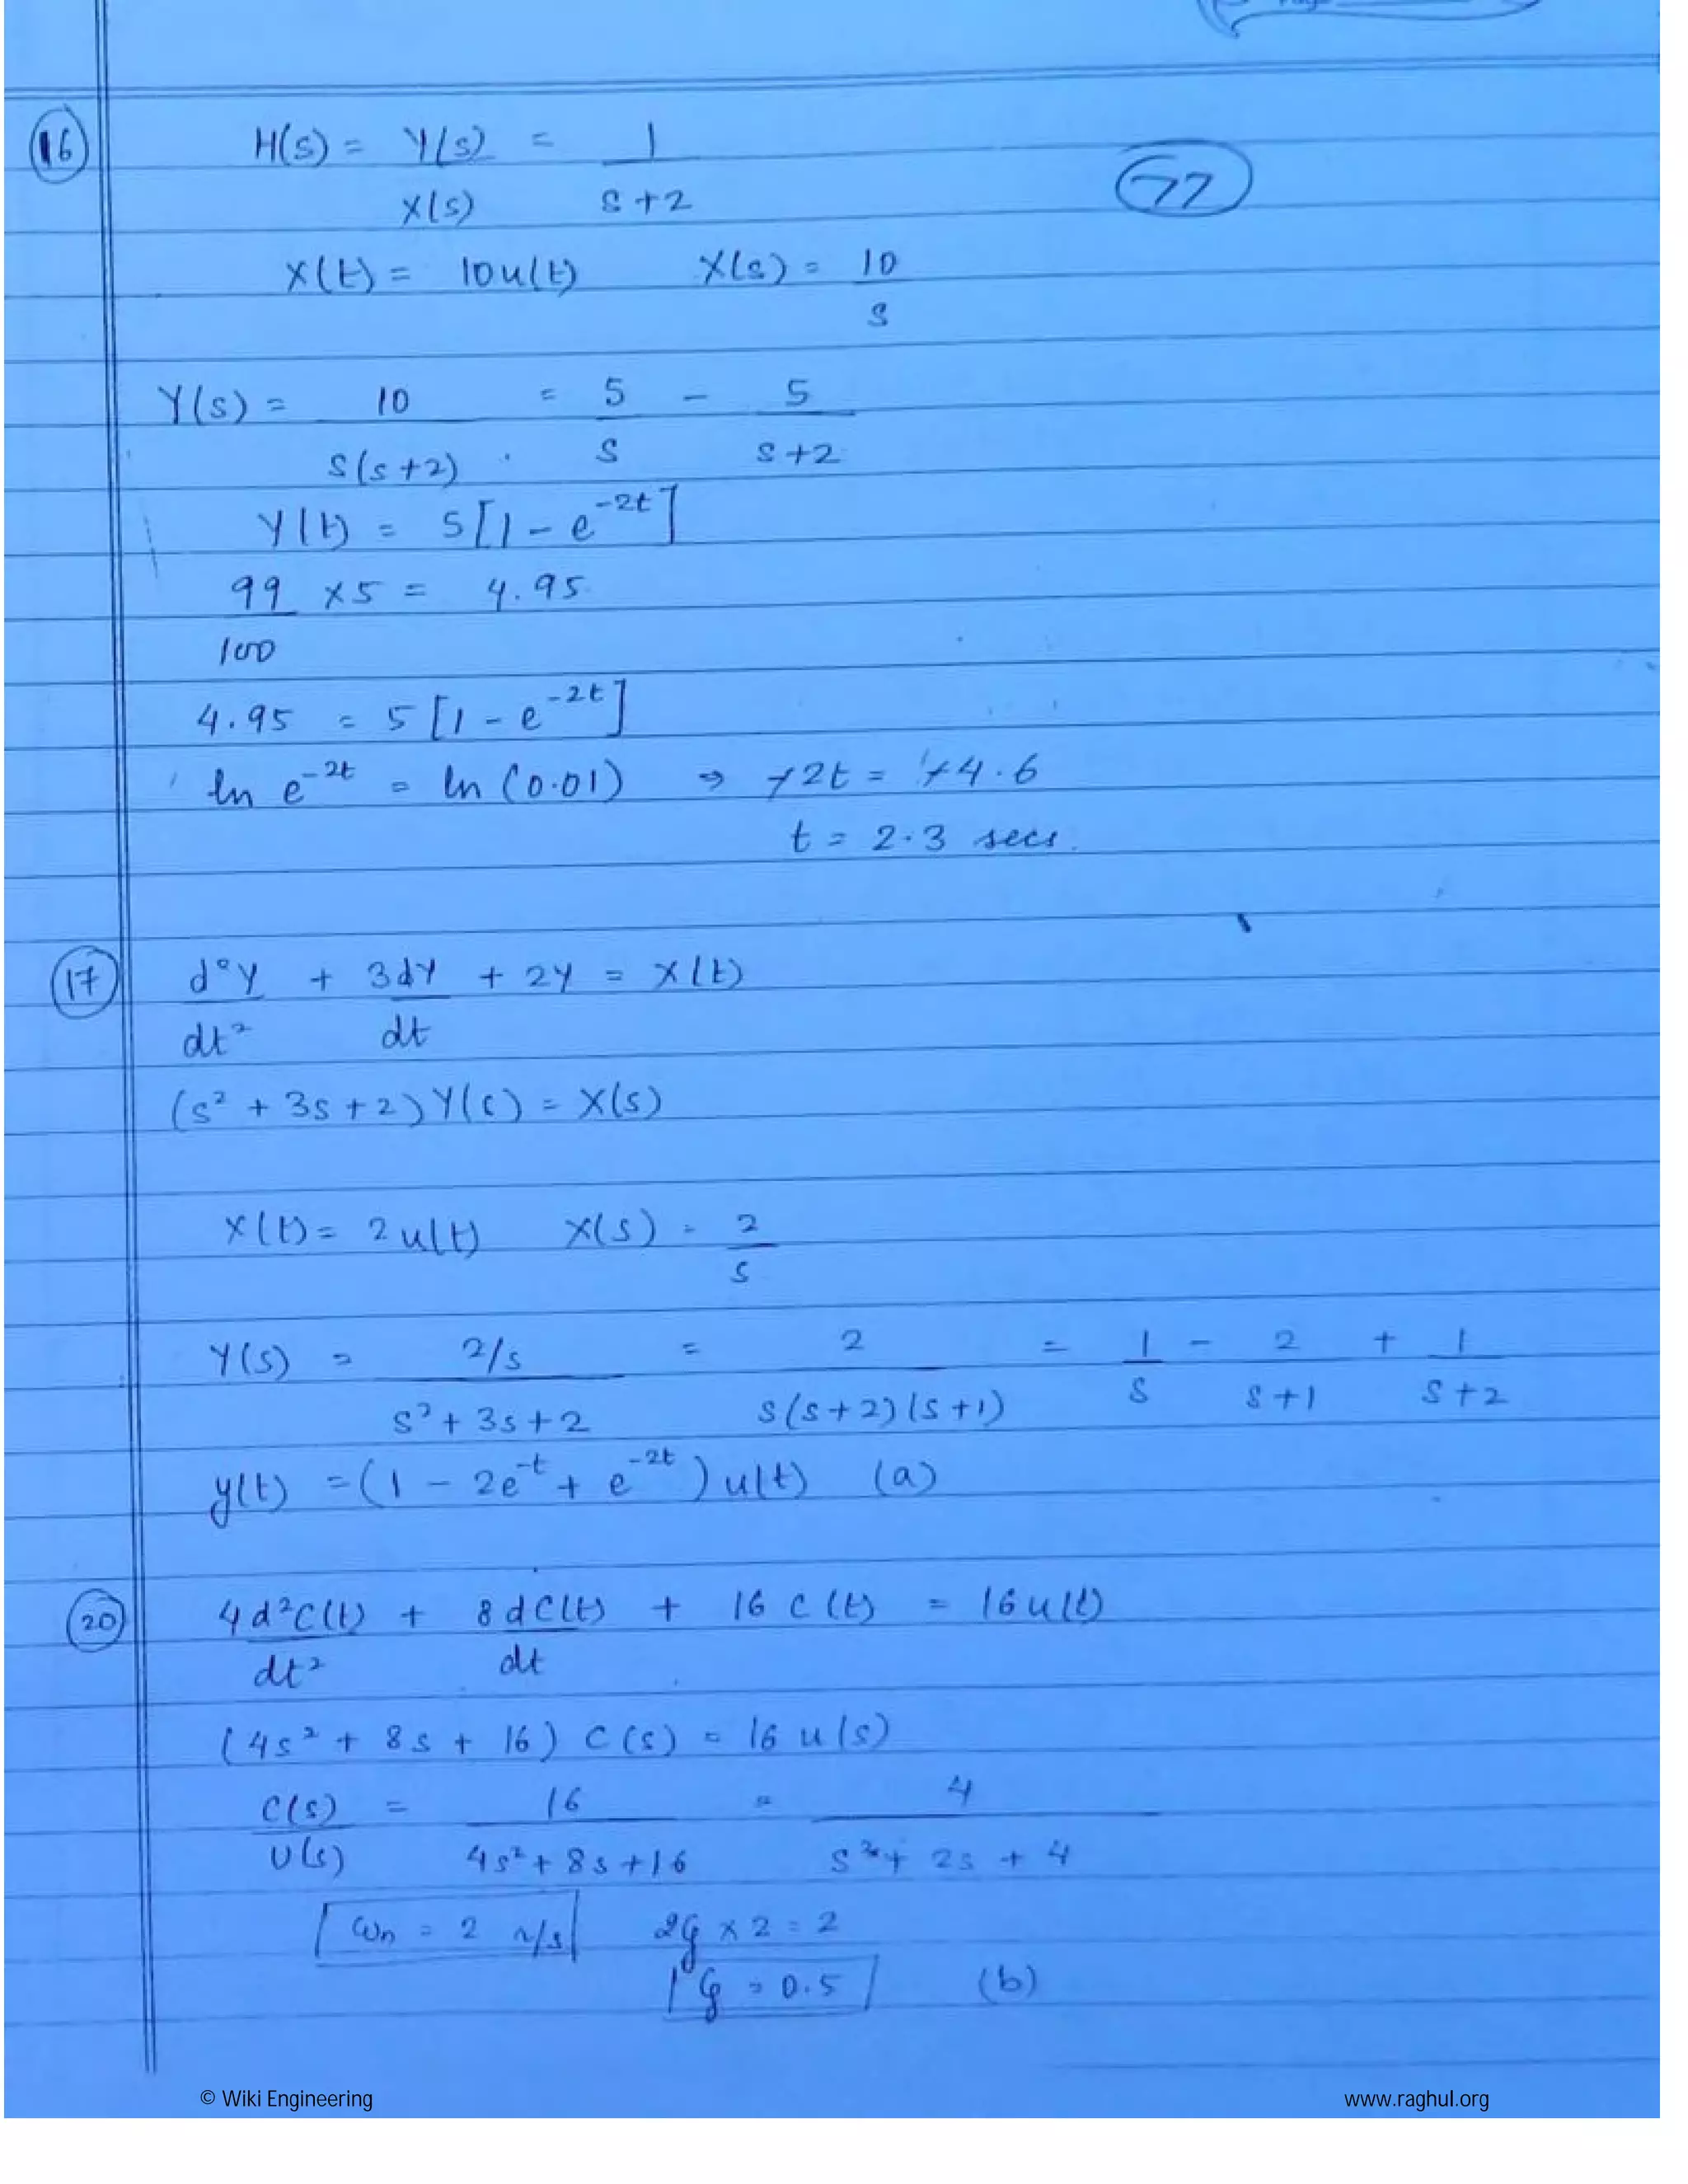 (16) H(s) = Y(s)/X(s) = 1/(s+2)
(77)
X(t) = 10u(t) X(s) = 10/s
Y(s) = 10/(s(s+2)) = 5/s - 5/(s+2)
Y(t) = 5[1 - e^-2t]
99/100 x5 = 4.95
4.95 = 5[1 - e^-2t]
ln e^-2t = ln (0.01) ⇒ -2t = -4.6
t = 2.3 secs.
(17) d²Y/dt² + 3dY/dt + 2Y = X(t)
(s² + 3s + 2) Y(s) = X(s)
X(t) = 2u(t) X(s) = 2/s
Y(s) = (2/s)/(s²+3s+2) = 2/(s(s+2)(s+1)) = 1/s - 2/(s+1) + 1/(s+2)
y(t) = (1 - 2e^-t + e^-2t) u(t) (a)
(20) 4d²C(t)/dt² + 8dC(t)/dt + 16 C(t) = 16u(t)
(4s² + 8s + 16) C(s) = 16 u(s)
C(s)/U(s) = 16/(4s²+8s+16) = 4/(s²+2s+4)
ωn = 2 r/s 2ζ x 2 = 2
ζ = 0.5 (b)
© Wiki Engineering www.raghul.org